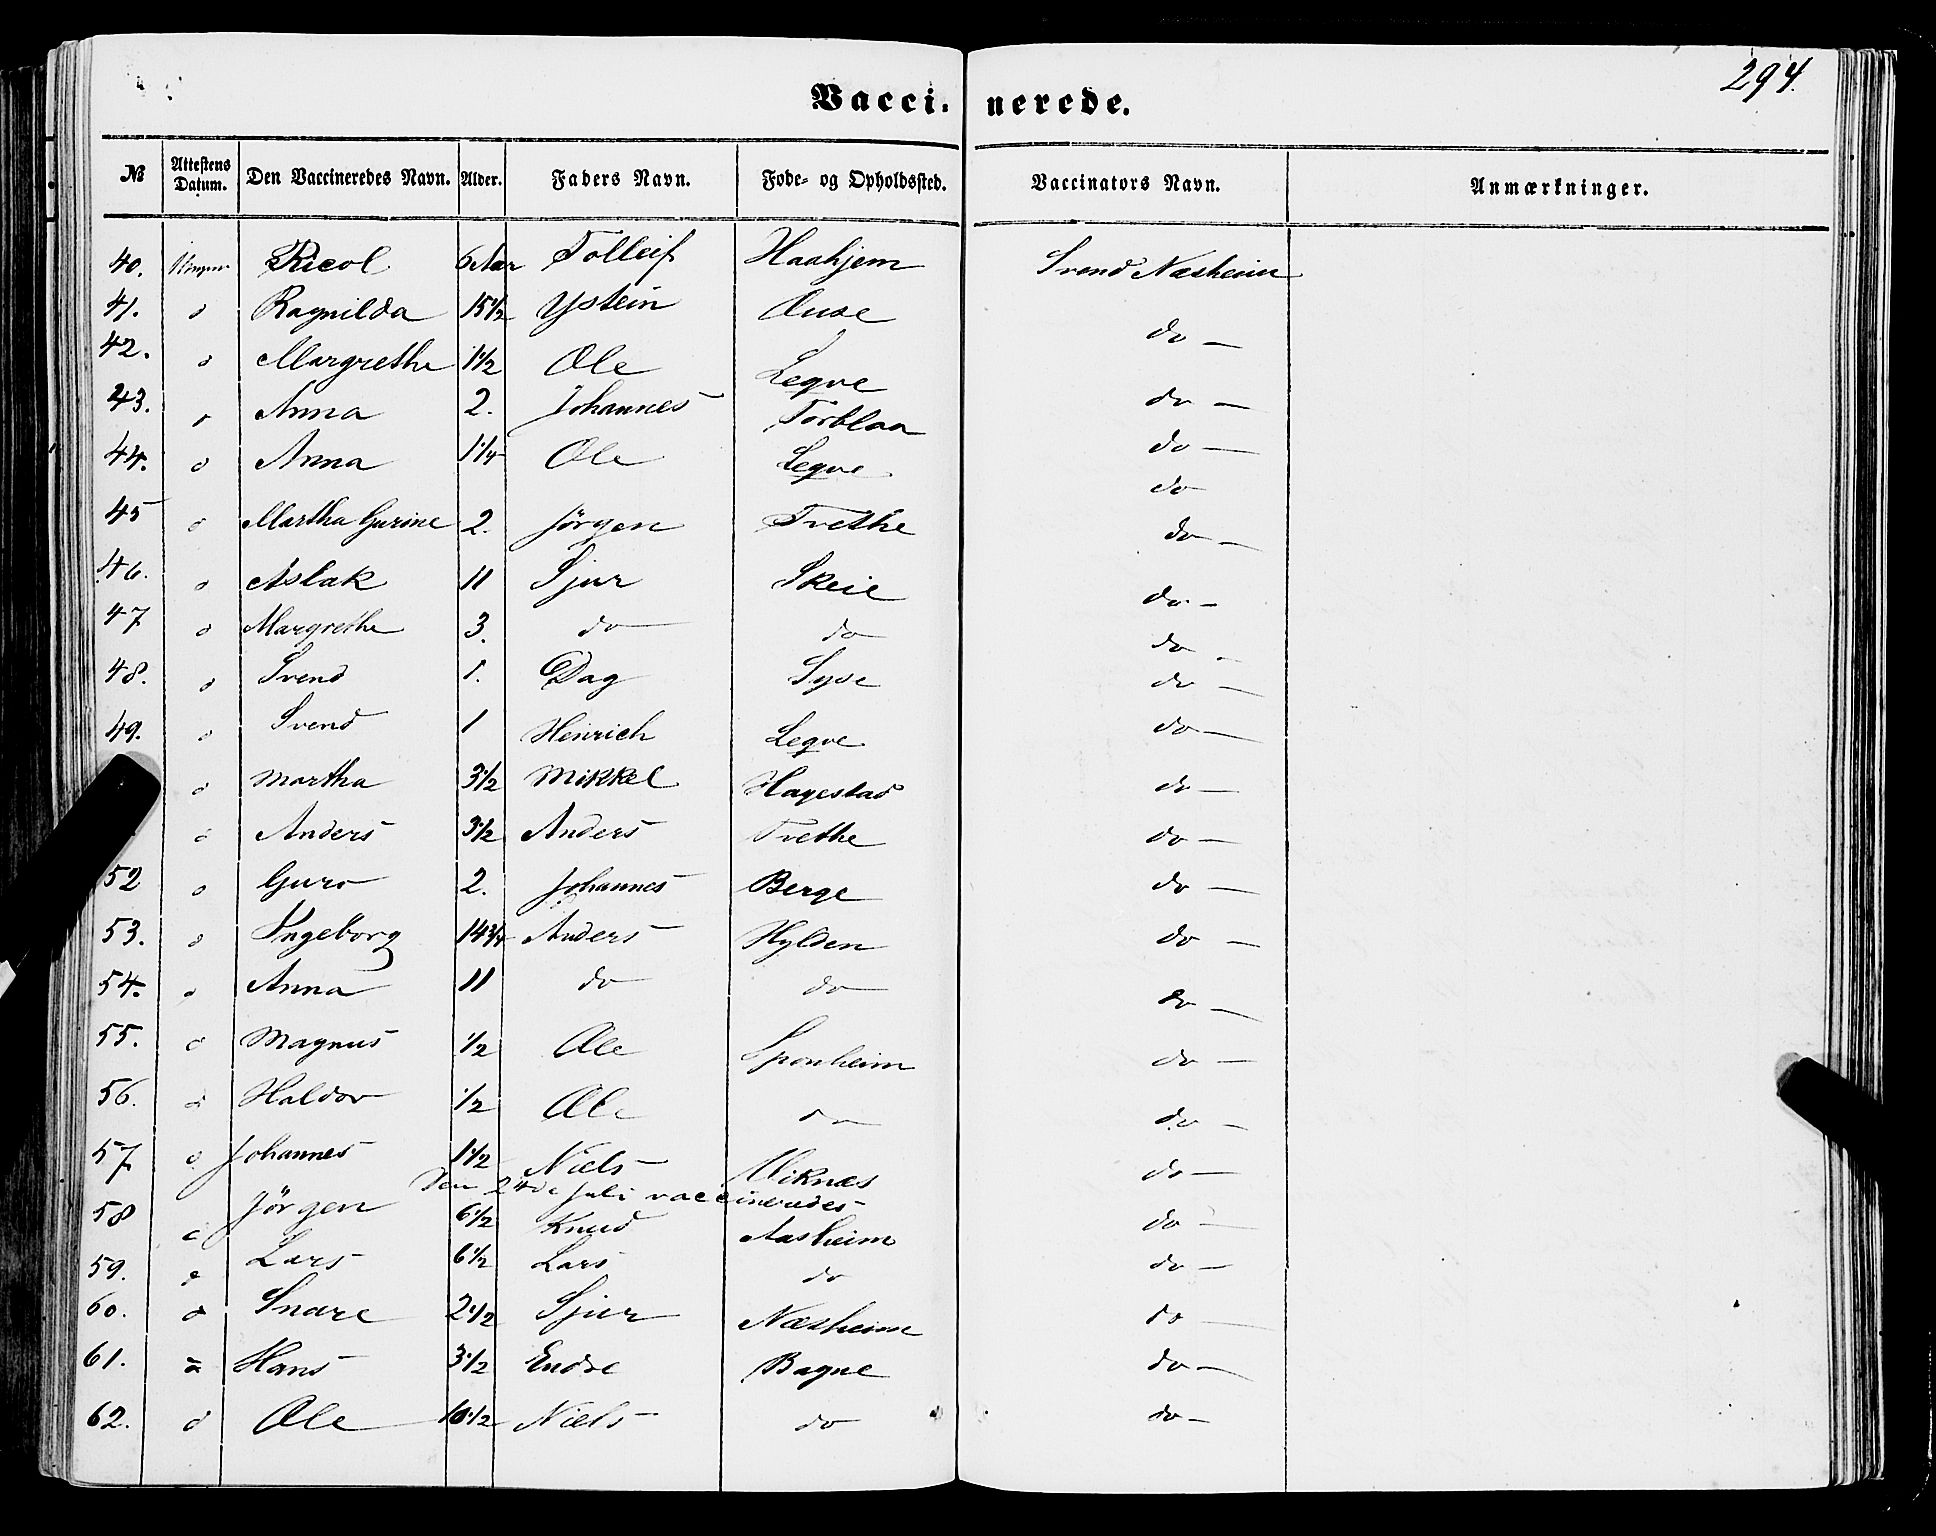 294.
Vacci. nerede.
№ Attestens Datum. Den Vaccineredes Navn. Alder. Faders Navn. Føde- og Opholdssted. Vaccinators Navn. Anmærkninger.
40. Ricol 6 Aar Tolleif Haahjem Svend Næsheim
41. d Ragnilda 15 1/2 Ystein Ouse do —
42. d Margrethe 1 1/2 Ole Leqve do —
43. d Anna 2. Johannes Torblaa do —
44. d Anna 1 1/4 Ole Leqve do
45 d Martha Gurine 2. Jörgen Tvethe do —
46. d Aslak 11 Sjur Skeie do —
47 d Margrethe 3. do do do —
48. d Svend 1. Dag Syse do —
49. d Svend 1 Heinrich Leqve do —
d Martha 3 1/2 Mikkel Hagestad do —
d Anders 3 1/2 Anders Tvethe do —
52 d Guro 2. Johannes Berge do —
53. d Ingeborg 14 3/4 Anders Hylden do —
54. d Anna 11 do do do —
55. d Magnus 1/2 Ole Sponheim do —
56. d Haldor 1/2 Ole do do —
57 d Johannes 1 1/2 Niels Viknæs do —
Den 24de Juli vaccineredes
58 d Jörgen 6 1/2 Knud Aasheim do —
59. d Lars 6 1/2 Lars do do —
60. d Snare 2 1/2 Sjur Næsheim do —
61. d Hans 3 1/2 Endre Bagne do —
62. d Ole 10 1/2 Niels do do —